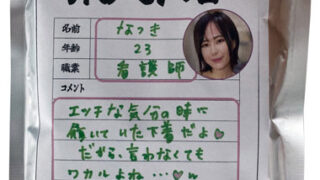 名前 なつき
年齢 23
職業 看護師
コメント
エッチな気分の時に
履いていた下着だよ♡
だから、言わなくても
ワカルよね…♡